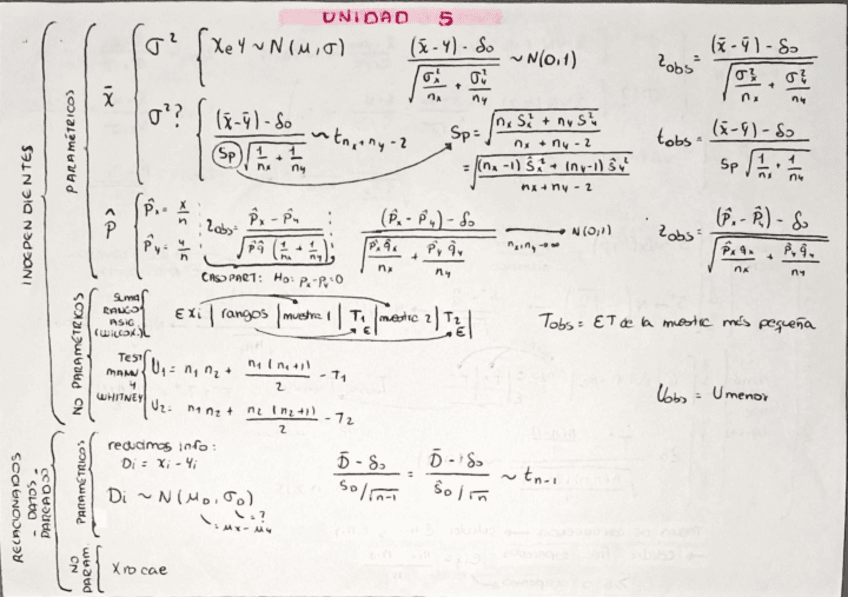 UNIDAD 5
INDEPENDIENTES
PARAMÉTRICOS
x̄
σ²
X e Y ~ N(μ,σ)
(x̄ - ȳ) - δ₀ / √(σₓ²/nₓ + σᵧ²/nᵧ) ~ N(0,1)
z_obs = (x̄ - ȳ) - δ₀ / √(σₓ²/nₓ + σᵧ²/nᵧ)
σ²?
(x̄ - ȳ) - δ₀ / Sp √(1/nₓ + 1/nᵧ) ~ t nₓ + nᵧ - 2
Sp = √(nₓ Sₓ² + nᵧ Sᵧ² / nₓ + nᵧ - 2)
= √((nₓ - 1) Ŝₓ² + (nᵧ - 1) Ŝᵧ² / nₓ + nᵧ - 2)
t_obs = (x̄ - ȳ) - δ₀ / Sp √(1/nₓ + 1/nᵧ)
p̂
p̂ₓ = x/n
p̂ᵧ = y/n
z_obs = p̂ₓ - p̂ᵧ / √(p̂q̂ (1/nₓ + 1/nᵧ))
CASO PART: H₀: pₓ - pᵧ = 0
(p̂ₓ - p̂ᵧ) - δ₀ / √(p̂ₓ q̂ₓ/nₓ + p̂ᵧ q̂ᵧ/nᵧ) → N(0,1)
nₓ, nᵧ → ∞
z_obs = (p̂ₓ - p̂ᵧ) - δ₀ / √(p̂ₓ q̂ₓ/nₓ + p̂ᵧ q̂ᵧ/nᵧ)
NO PARAMÉTRICOS
SUMA
RANGO
ASIG
(WILCOX.)
E Xi | rangos | muestra 1 | T₁ | muestra 2 | T₂ |
E E
T_obs = ET de la muestra más pequeña
TEST
MANN
Y
WHITNEY
U₁ = n₁ n₂ + n₁(n₁+1)/2 - T₁
U₂ = n₁ n₂ + n₂(n₂+1)/2 - T₂
U_obs = U menor
RELACIONADOS
- DATOS -
PAREADOS
PARAMÉTRICOS
reducimos info:
Di = xi - yi
Di ~ N(μ_D, σ_D)
= ?
= μx - μy
D̄ - δ₀ / S_D/√n-1 = D̄ - δ₀ / Ŝ_D/√n ~ t n-1
NO
PARAM.
X no cae